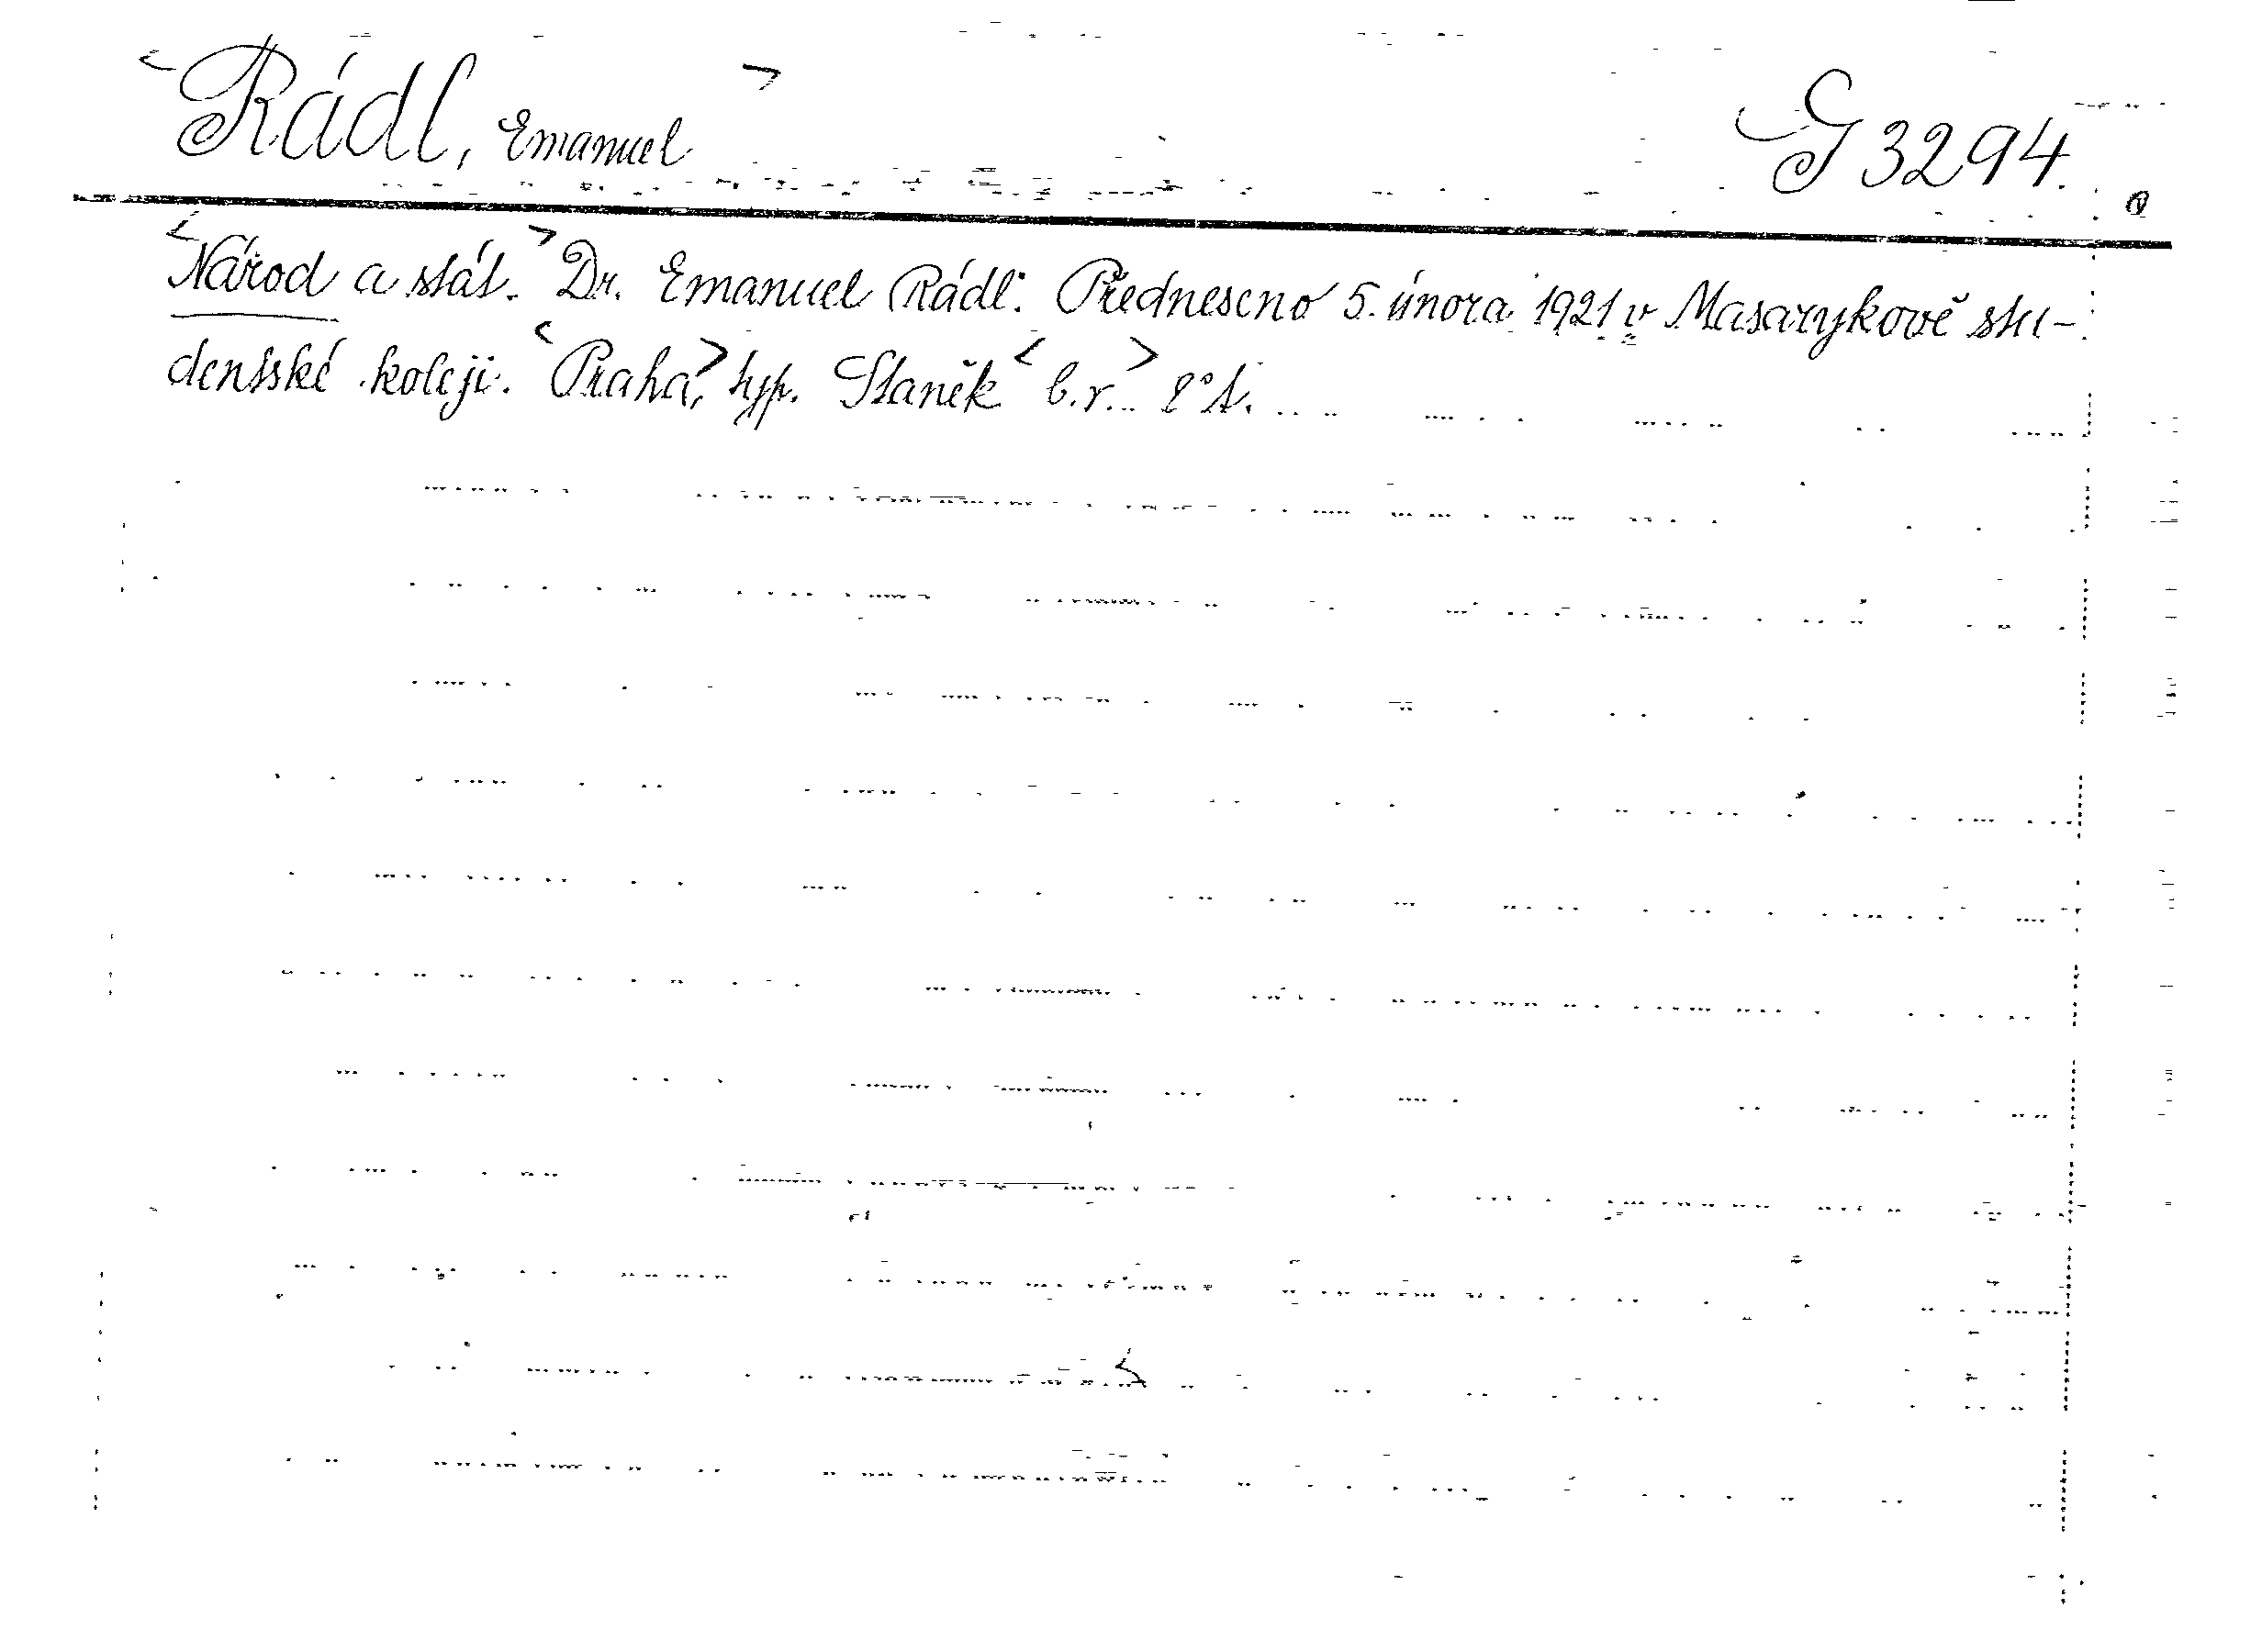 <Rádl, Emanuel> G 3294.
<Národ a stát.> Dr. Emanuel Rádl. Předneseno 5. února 1921 v Masarykově stu-
dentské koleji. <Praha>, typ. Staněk <b.r.> 8°